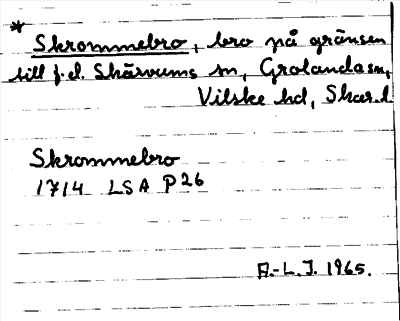 *
Skrommebro, bro på gränsen
till f.d. Skärvums sn, Grolanda sn,
Vilske hd, Skar. l.
Skrommebro
1714 LSA P26
A.-L. J. 1965.